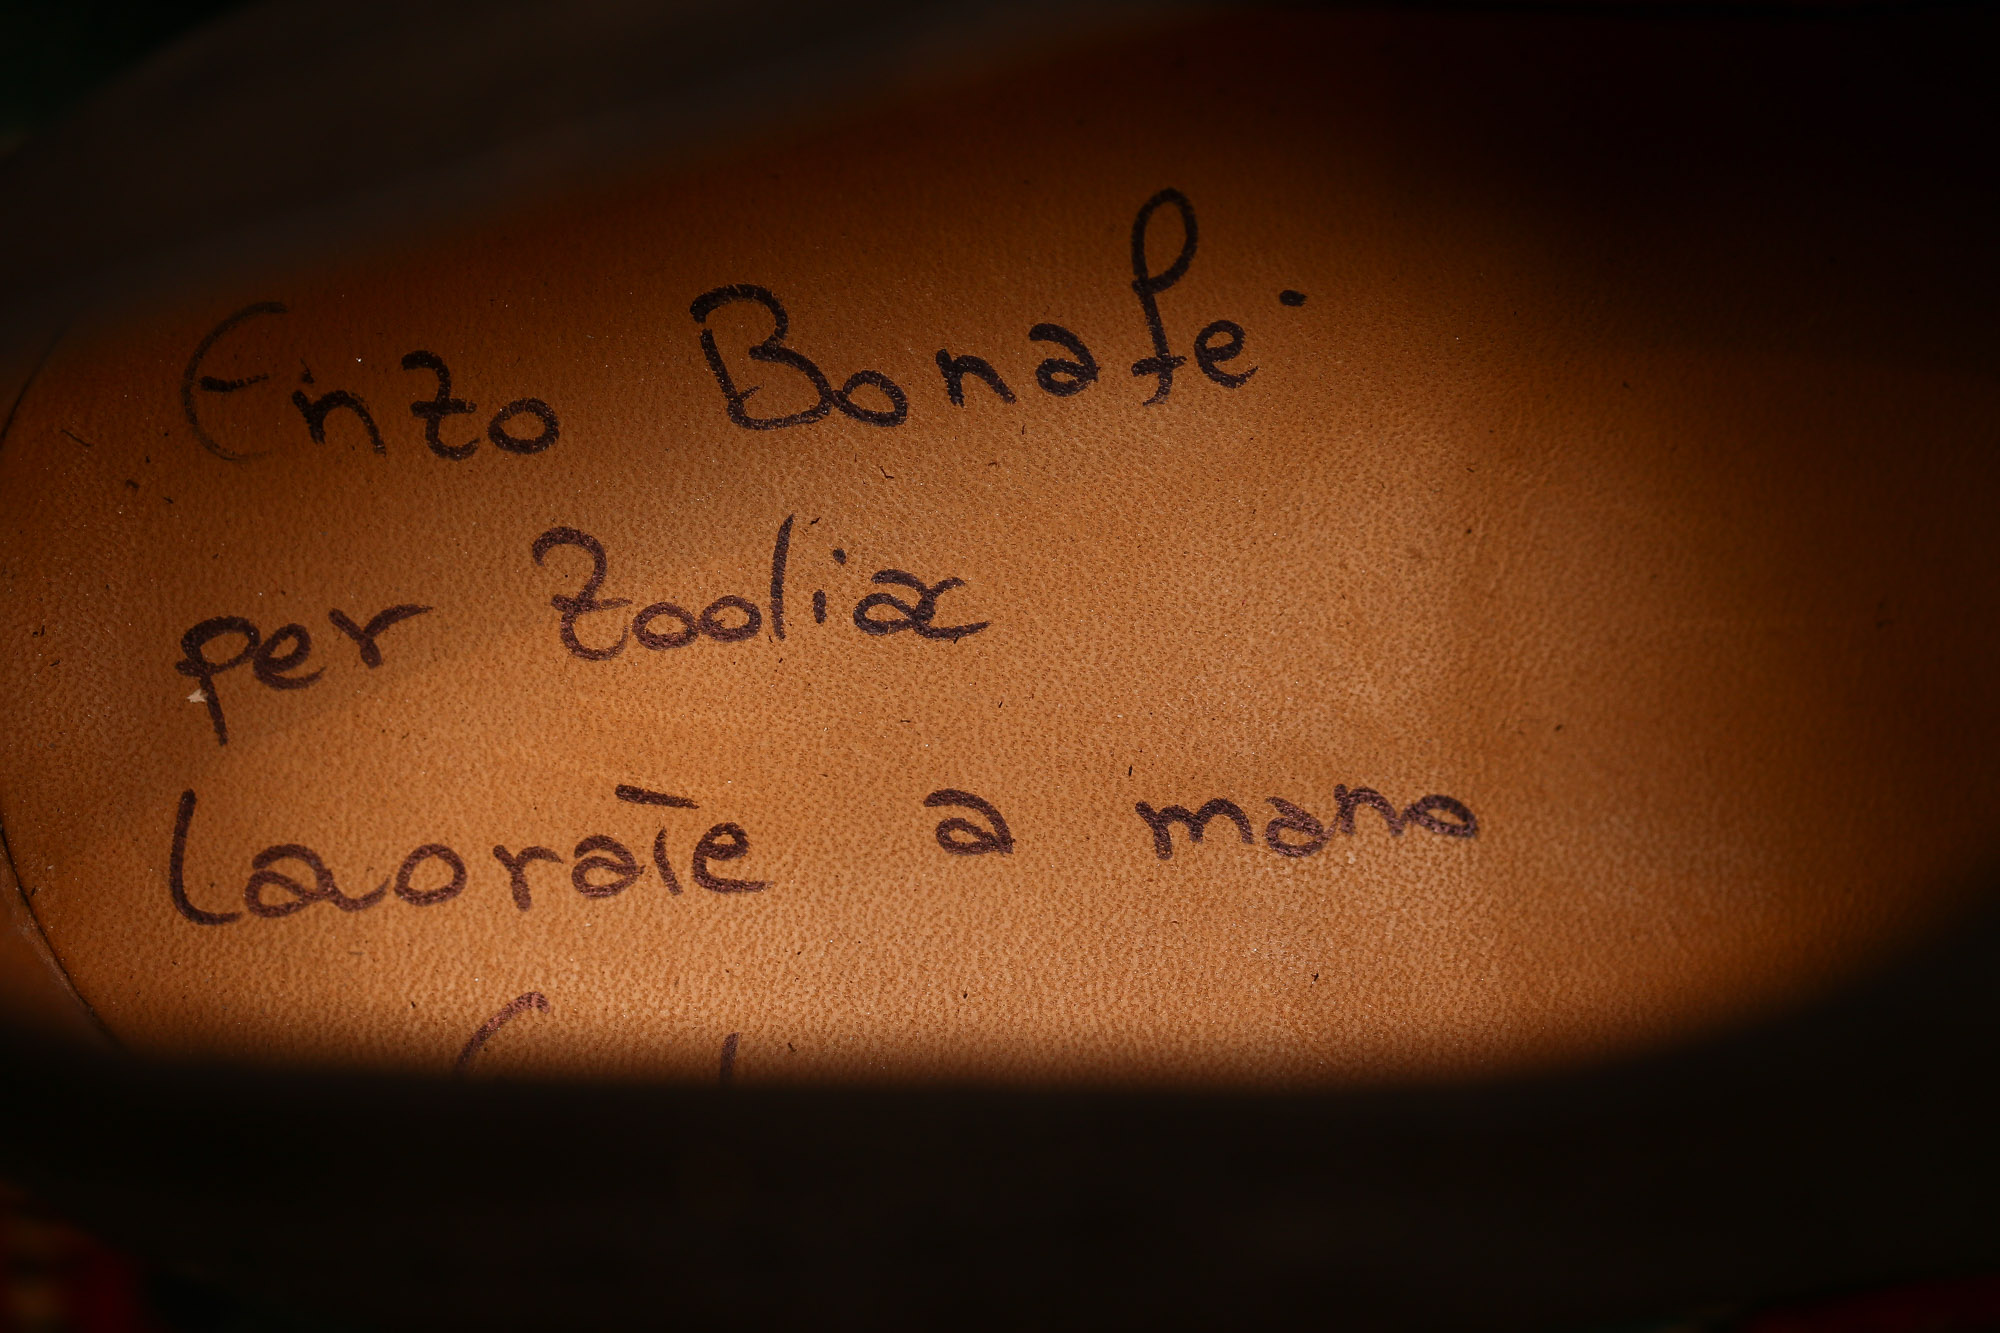 Enzo Bonafe'
per Zodiac
Lavorate a mano